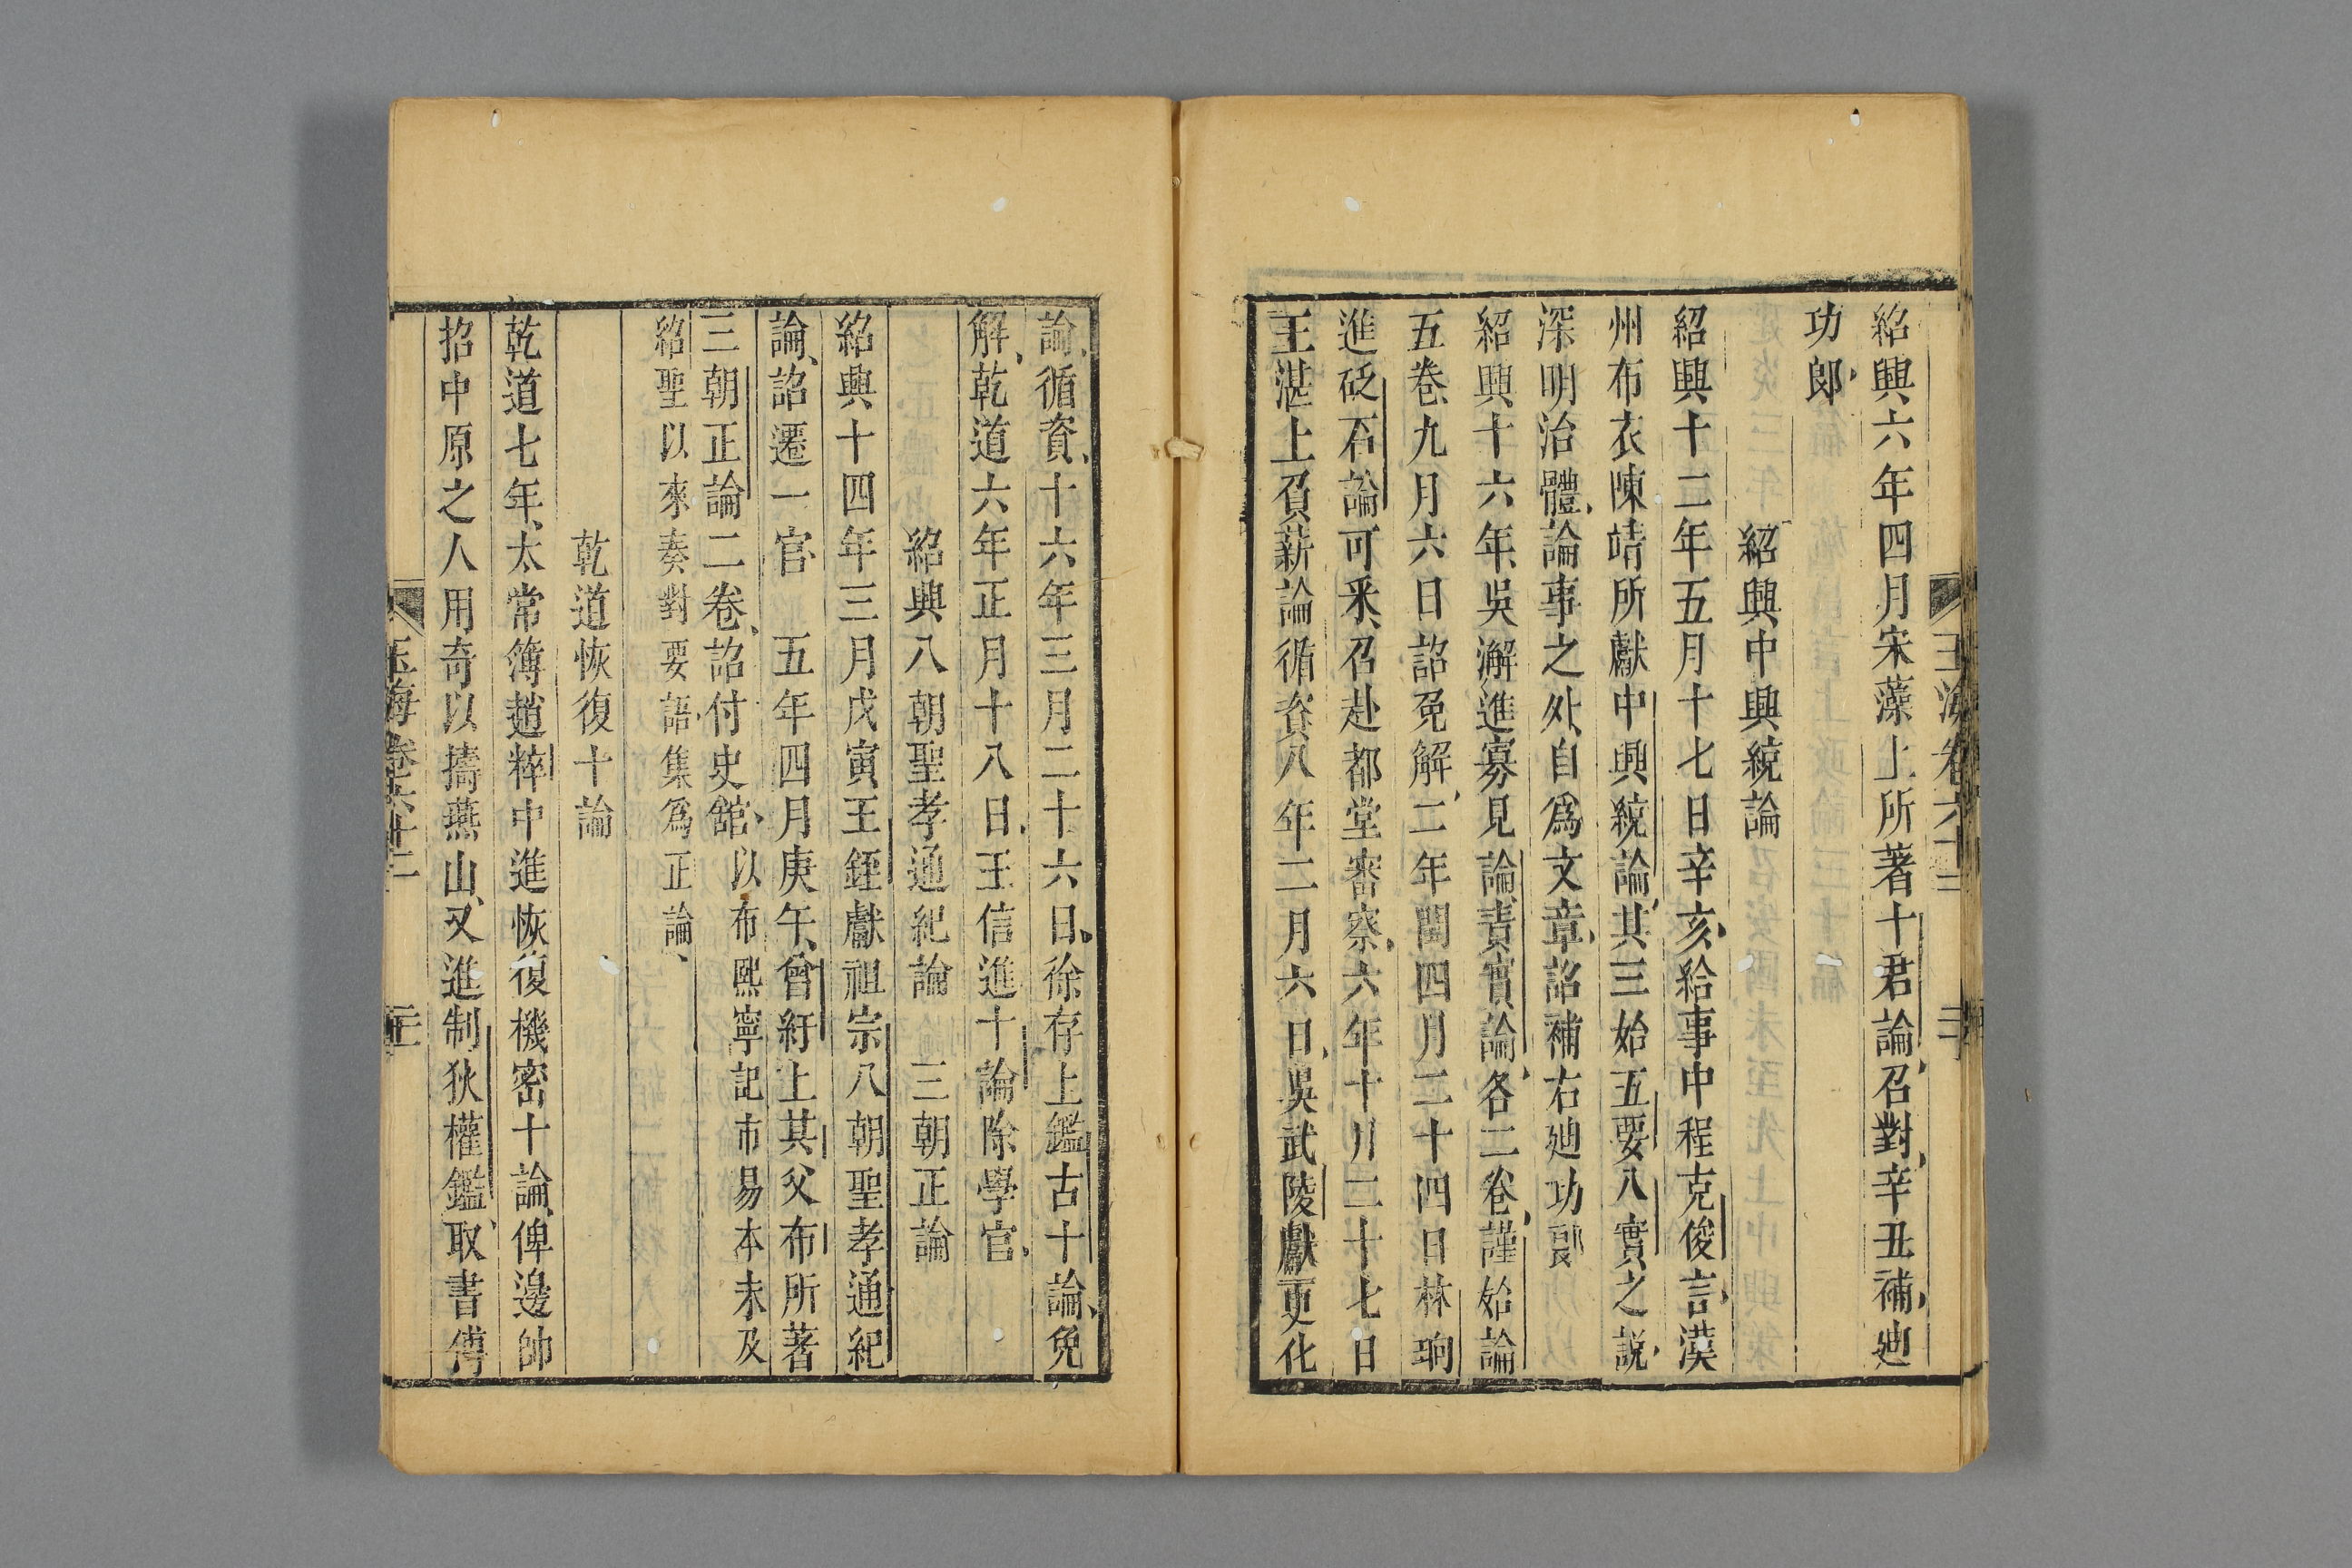 玉海卷六十二
紹興六年四月宋藻上所著十君論召對辛丑補廸
功郎
紹興中興統論
紹興十二年五月十七日辛亥給事中程克俊言漢
州布衣陳靖所獻中興統論其三始五要八實之説
深明治體論事之外自爲文章詔補右廸功郎
紹興十六年吳澥進寡見論責實論各二卷謹始論
五卷九月六日詔免解二年閏四月二十四日林珦
進砭石論可采召赴都堂審察六年十月二十七日
王湛上負薪論循資八年二月六日吳武陵獻更化
論循資十六年三月二十六日徐存上鑑古十論免
解乾道六年正月十八日王信進十論除學官
紹興八朝聖孝通紀論 三朝正論
紹興十四年三月戊寅王銍獻祖宗八朝聖孝通紀
論詔遷一官 五年四月庚午曾紆上其父布所著
三朝正論二卷詔付史館以布熙寧記市易本末及
紹聖以來奏對要語集爲正論
乾道恢復十論
乾道七年太常簿趙粹中進恢復機密十論俾邊帥
招中原之人用奇以擣燕山又進制狄權鑑取書傅
玉海卷六十二